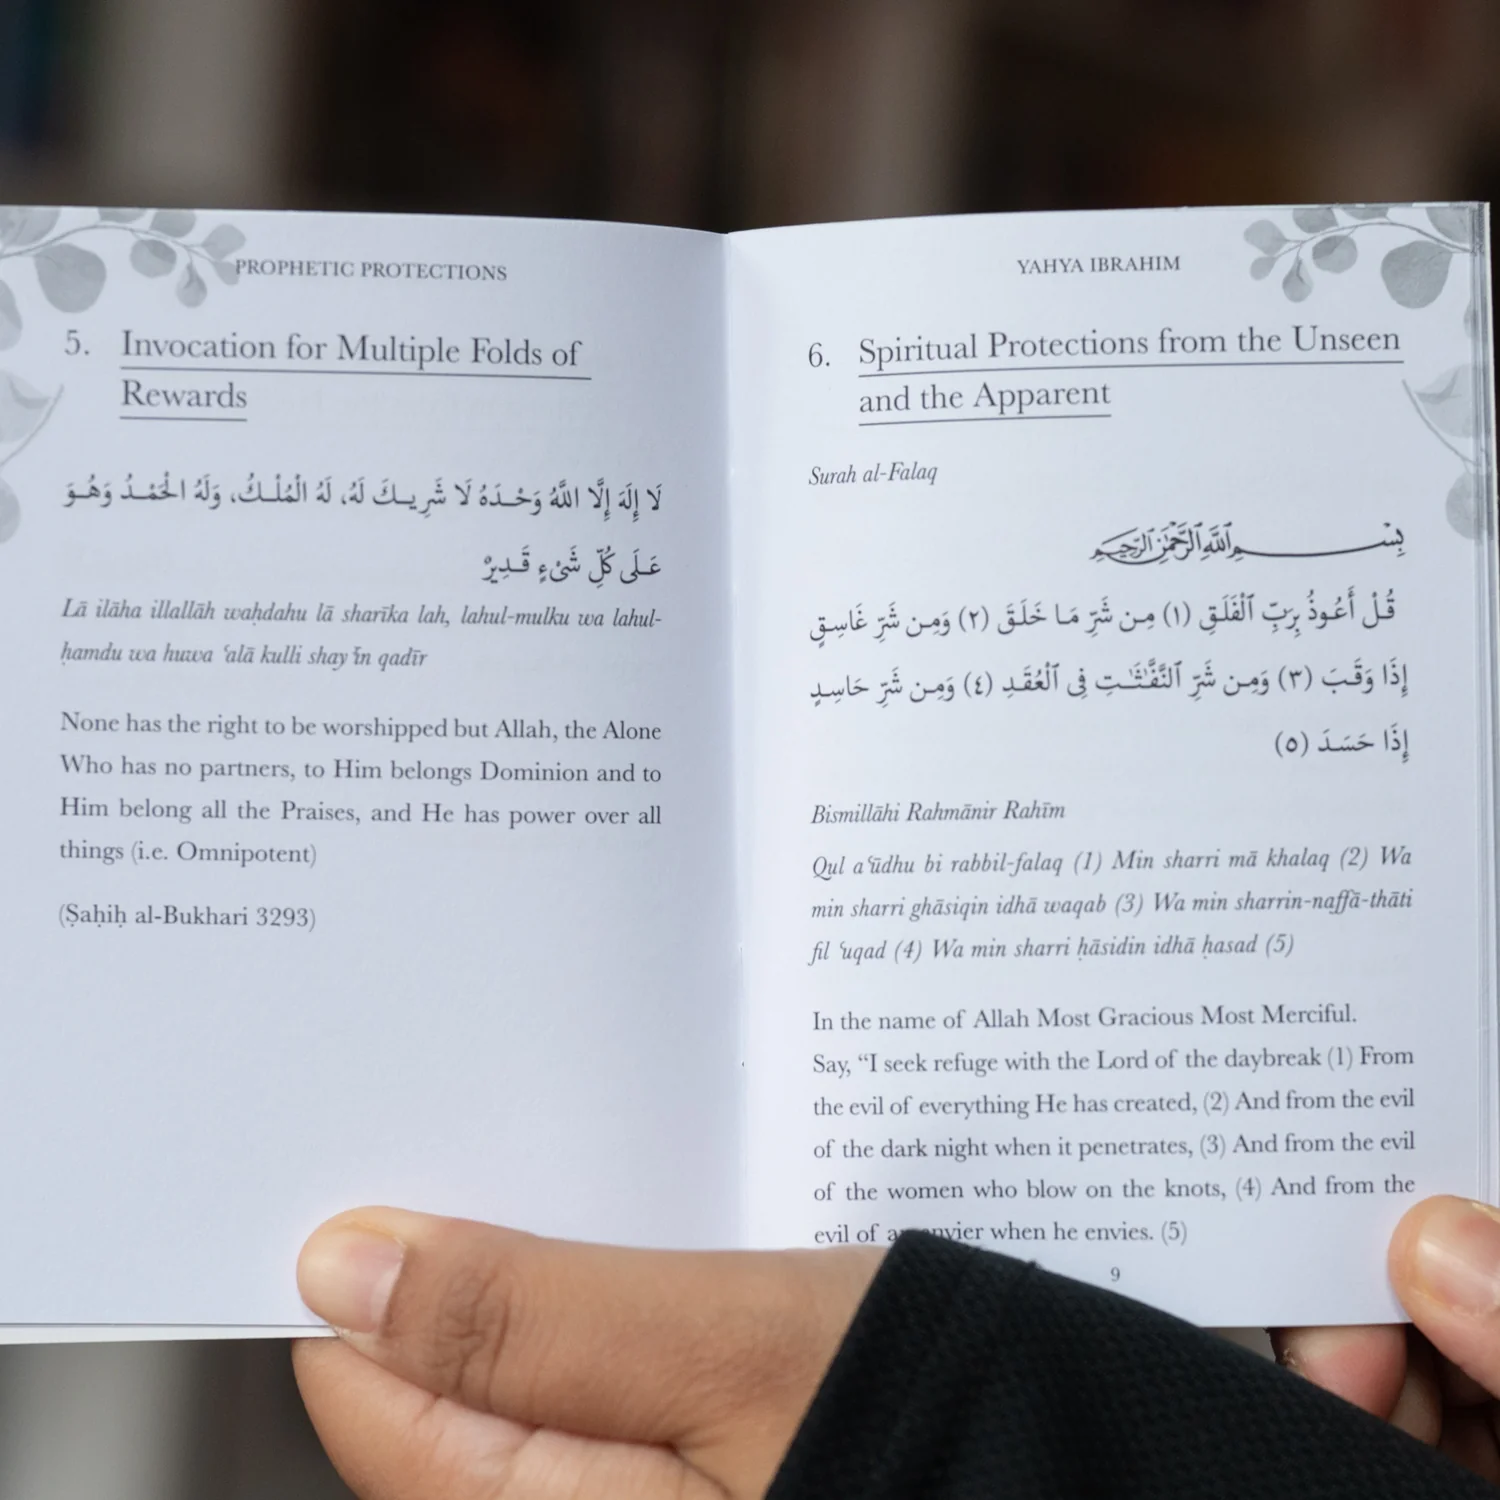 PROPHETIC PROTECTIONS
5. Invocation for Multiple Folds of
Rewards
لَا إِلَهَ إِلَّا اللَّهُ وَحْدَهُ لَا شَرِيكَ لَهُ، لَهُ الْمُلْكُ، وَلَهُ الْحَمْدُ وَهُوَ
عَلَى كُلِّ شَىْءٍ قَدِيرٌ
Lā ilāha illallāh waḥdahu lā sharīka lah, lahul-mulku wa lahul-
ḥamdu wa huwa ‘alā kulli shay ‘in qadīr
None has the right to be worshipped but Allah, the Alone
Who has no partners, to Him belongs Dominion and to
Him belong all the Praises, and He has power over all
things (i.e. Omnipotent)
(Ṣaḥiḥ al-Bukhari 3293)
YAHYA IBRAHIM
6. Spiritual Protections from the Unseen
and the Apparent
Surah al-Falaq
بِسْمِ اللَّهِ الرَّحْمَٰنِ الرَّحِيمِ
قُلْ أَعُوذُ بِرَبِّ ٱلْفَلَقِ (١) مِن شَرِّ مَا خَلَقَ (٢) وَمِن شَرِّ غَاسِقٍ
إِذَا وَقَبَ (٣) وَمِن شَرِّ ٱلنَّفَّٰثَٰتِ فِى ٱلْعُقَدِ (٤) وَمِن شَرِّ حَاسِدٍ
إِذَا حَسَدَ (٥)
Bismillāhi Rahmānir Rahīm
Qul a‘ūdhu bi rabbil-falaq (1) Min sharri mā khalaq (2) Wa
min sharri ghāsiqin idhā waqab (3) Wa min sharrin-naffā-thāti
fil ‘uqad (4) Wa min sharri ḥāsidin idhā ḥasad (5)
In the name of Allah Most Gracious Most Merciful.
Say, “I seek refuge with the Lord of the daybreak (1) From
the evil of everything He has created, (2) And from the evil
of the dark night when it penetrates, (3) And from the evil
of the women who blow on the knots, (4) And from the
evil of an envier when he envies. (5)
9